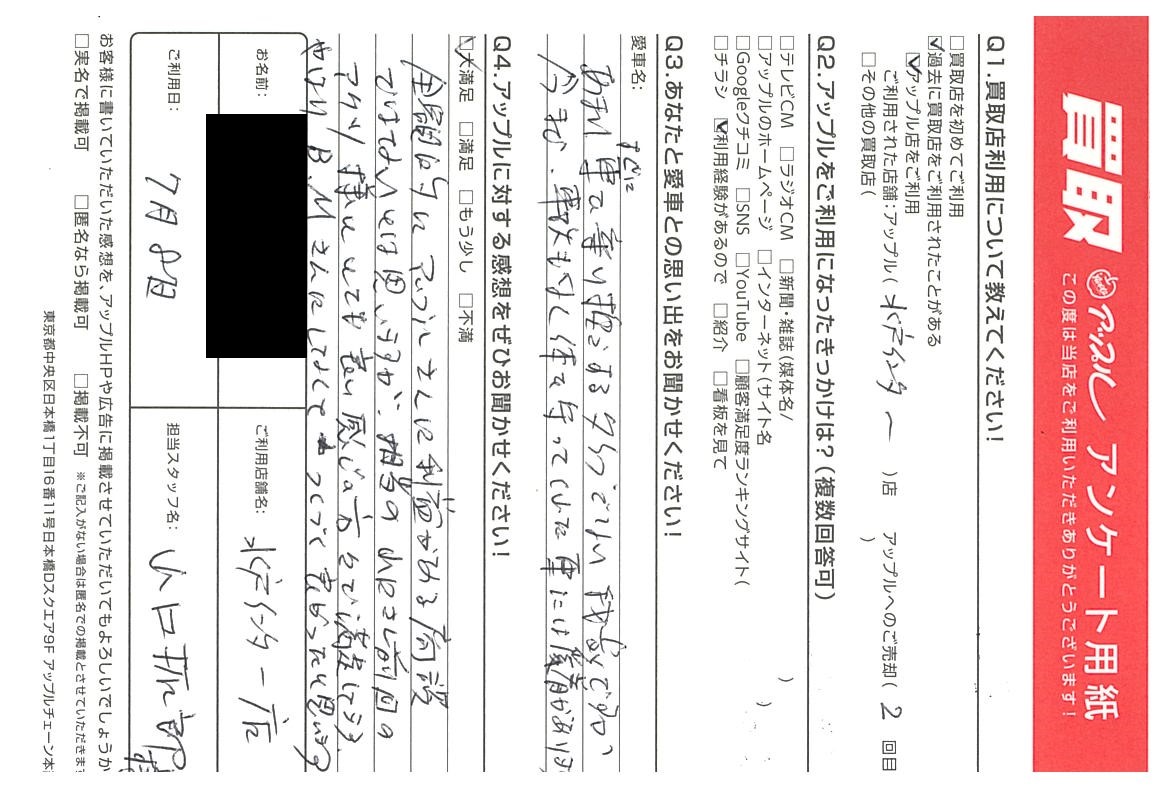 買取 アップル アンケート用紙
この度は当店をご利用いただきありがとうございます！
Q1.買取店利用について教えてください！
□買取店を初めてご利用
☑過去に買取店をご利用されたことがある
☑アップル店をご利用
ご利用された店舗：アップル（水戸インター　）店　アップルへのご売却（ 2 回目
□その他の買取店（　）
Q2.アップルをご利用になったきっかけは？（複数回答可）
□テレビCM □ラジオCM □新聞・雑誌（媒体名/　）
□アップルのホームページ □インターネット（サイト名　）
□Googleクチコミ □SNS □YouTube □顧客満足度ランキングサイト（
□チラシ ☑利用経験があるので □紹介 □看板を見て
Q3.あなたと愛車との思い出をお聞かせください！
愛車名：
すぐに
あまり車を乗り換えするタイプでない我家ですが
今まで、事故もなく
車には愛着があります
Q4.アップルに対する感想をぜひお聞かせください！
☑大満足 □満足 □もう少し □不満
全部的にアップルさんに利益がある
ではないとは思いますが、担当の山口さん前回の
様もとても良い感じの方々で満足してます
やはりB.Mさんにしなくて
良かったと思います
お名前：
ご利用店舗名： 水戸インター店
ご利用日： 7月8日
担当スタッフ名： 山口
お客様に書いていただいた感想を、アップルHPや広告に掲載させていただいてもよろしいでしょうか
□実名で掲載可 □匿名なら掲載可 □掲載不可 ※ご記入がない場合は匿名での掲載とさせていただきま
東京都中央区日本橋1丁目16番11号日本橋Dスクエア9F アップルチェーン本